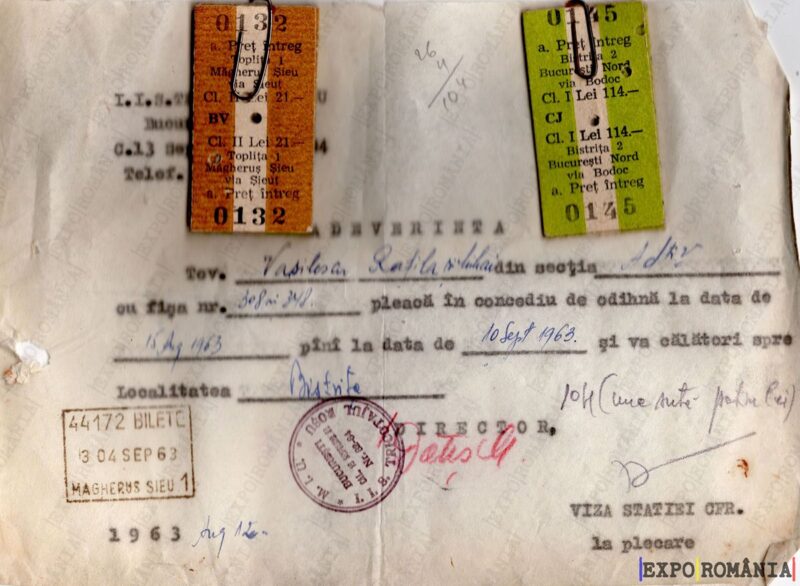 0132
a. Preț întreg
Toplița 1
Măgheruș Șieu
via Șieuț
Cl. II Lei 21.—
BV
Cl. II Lei 21.—
Toplița 1
Măgheruș Șieu
via Șieuț
a. Preț întreg
0132
0145
a. Preț întreg
Bistrița 2
București Nord
via Bodoc
Cl. I Lei 114.—
CJ
Cl. I Lei 114.—
Bistrița 2
București Nord
via Bodoc
a. Preț întreg
0145
26
4/104
I.I.S.
Bucu
C.13 Sep
Telef.
ADEVERINTA
Tov. Vasilescu din secția
cu fișa nr. pleacă în concediu de odihnă la data de
15 Aug 1963 pînî la data de 10 Sept 1963. și va călători spre
Localitatea Bistrița
104 (una sută patru lei)
DIRECTOR,
44172 BILETE
3 04 SEP 63
MAGHERUS SIEU 1
M.I.U. * I.I.S. TRICOTAJUL ROȘU *
BUCUREȘTI
VIZA STATIEI CFR.
la plecare
1963 Aug 12.-
EXPO ROMÂNIA